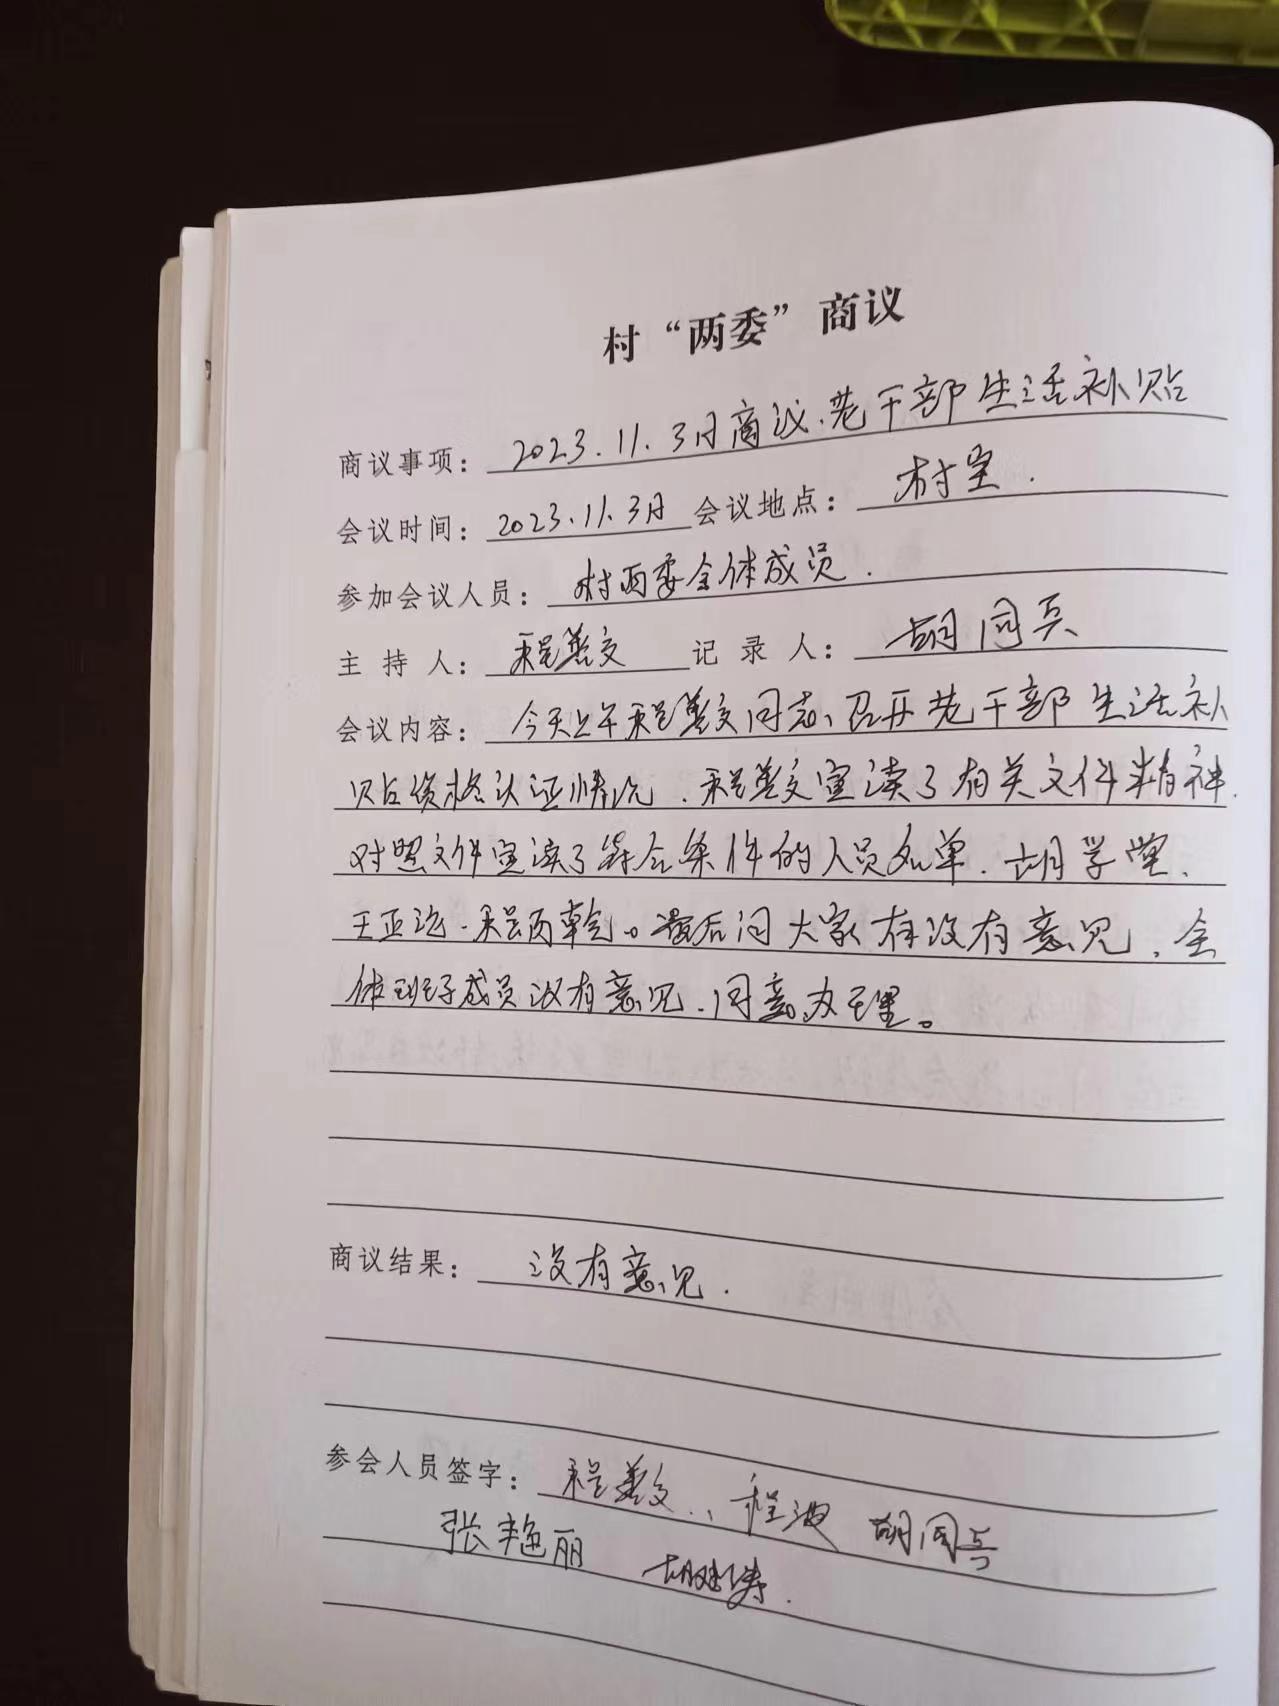 村“两委”商议
商议事项：2023.11.3日商议、老干部生活补贴
会议时间：2023.11.3日 会议地点：村室.
参加会议人员：村两委全体成员.
主持人：程善文 记录人：胡同兵
会议内容：今天上午程善文同志、召开老干部生活补
贴资格认证情况、程善文宣读了有关文件精神.
对照文件宣读了符合条件的人员名单、胡学堂、
王亚、程丙乾。最后问大家有没有意见、全
体班子成员没有意见、同意办理。
商议结果：没有意见.
参会人员签字：程善文、程 胡同兵
张艳丽 胡涛.